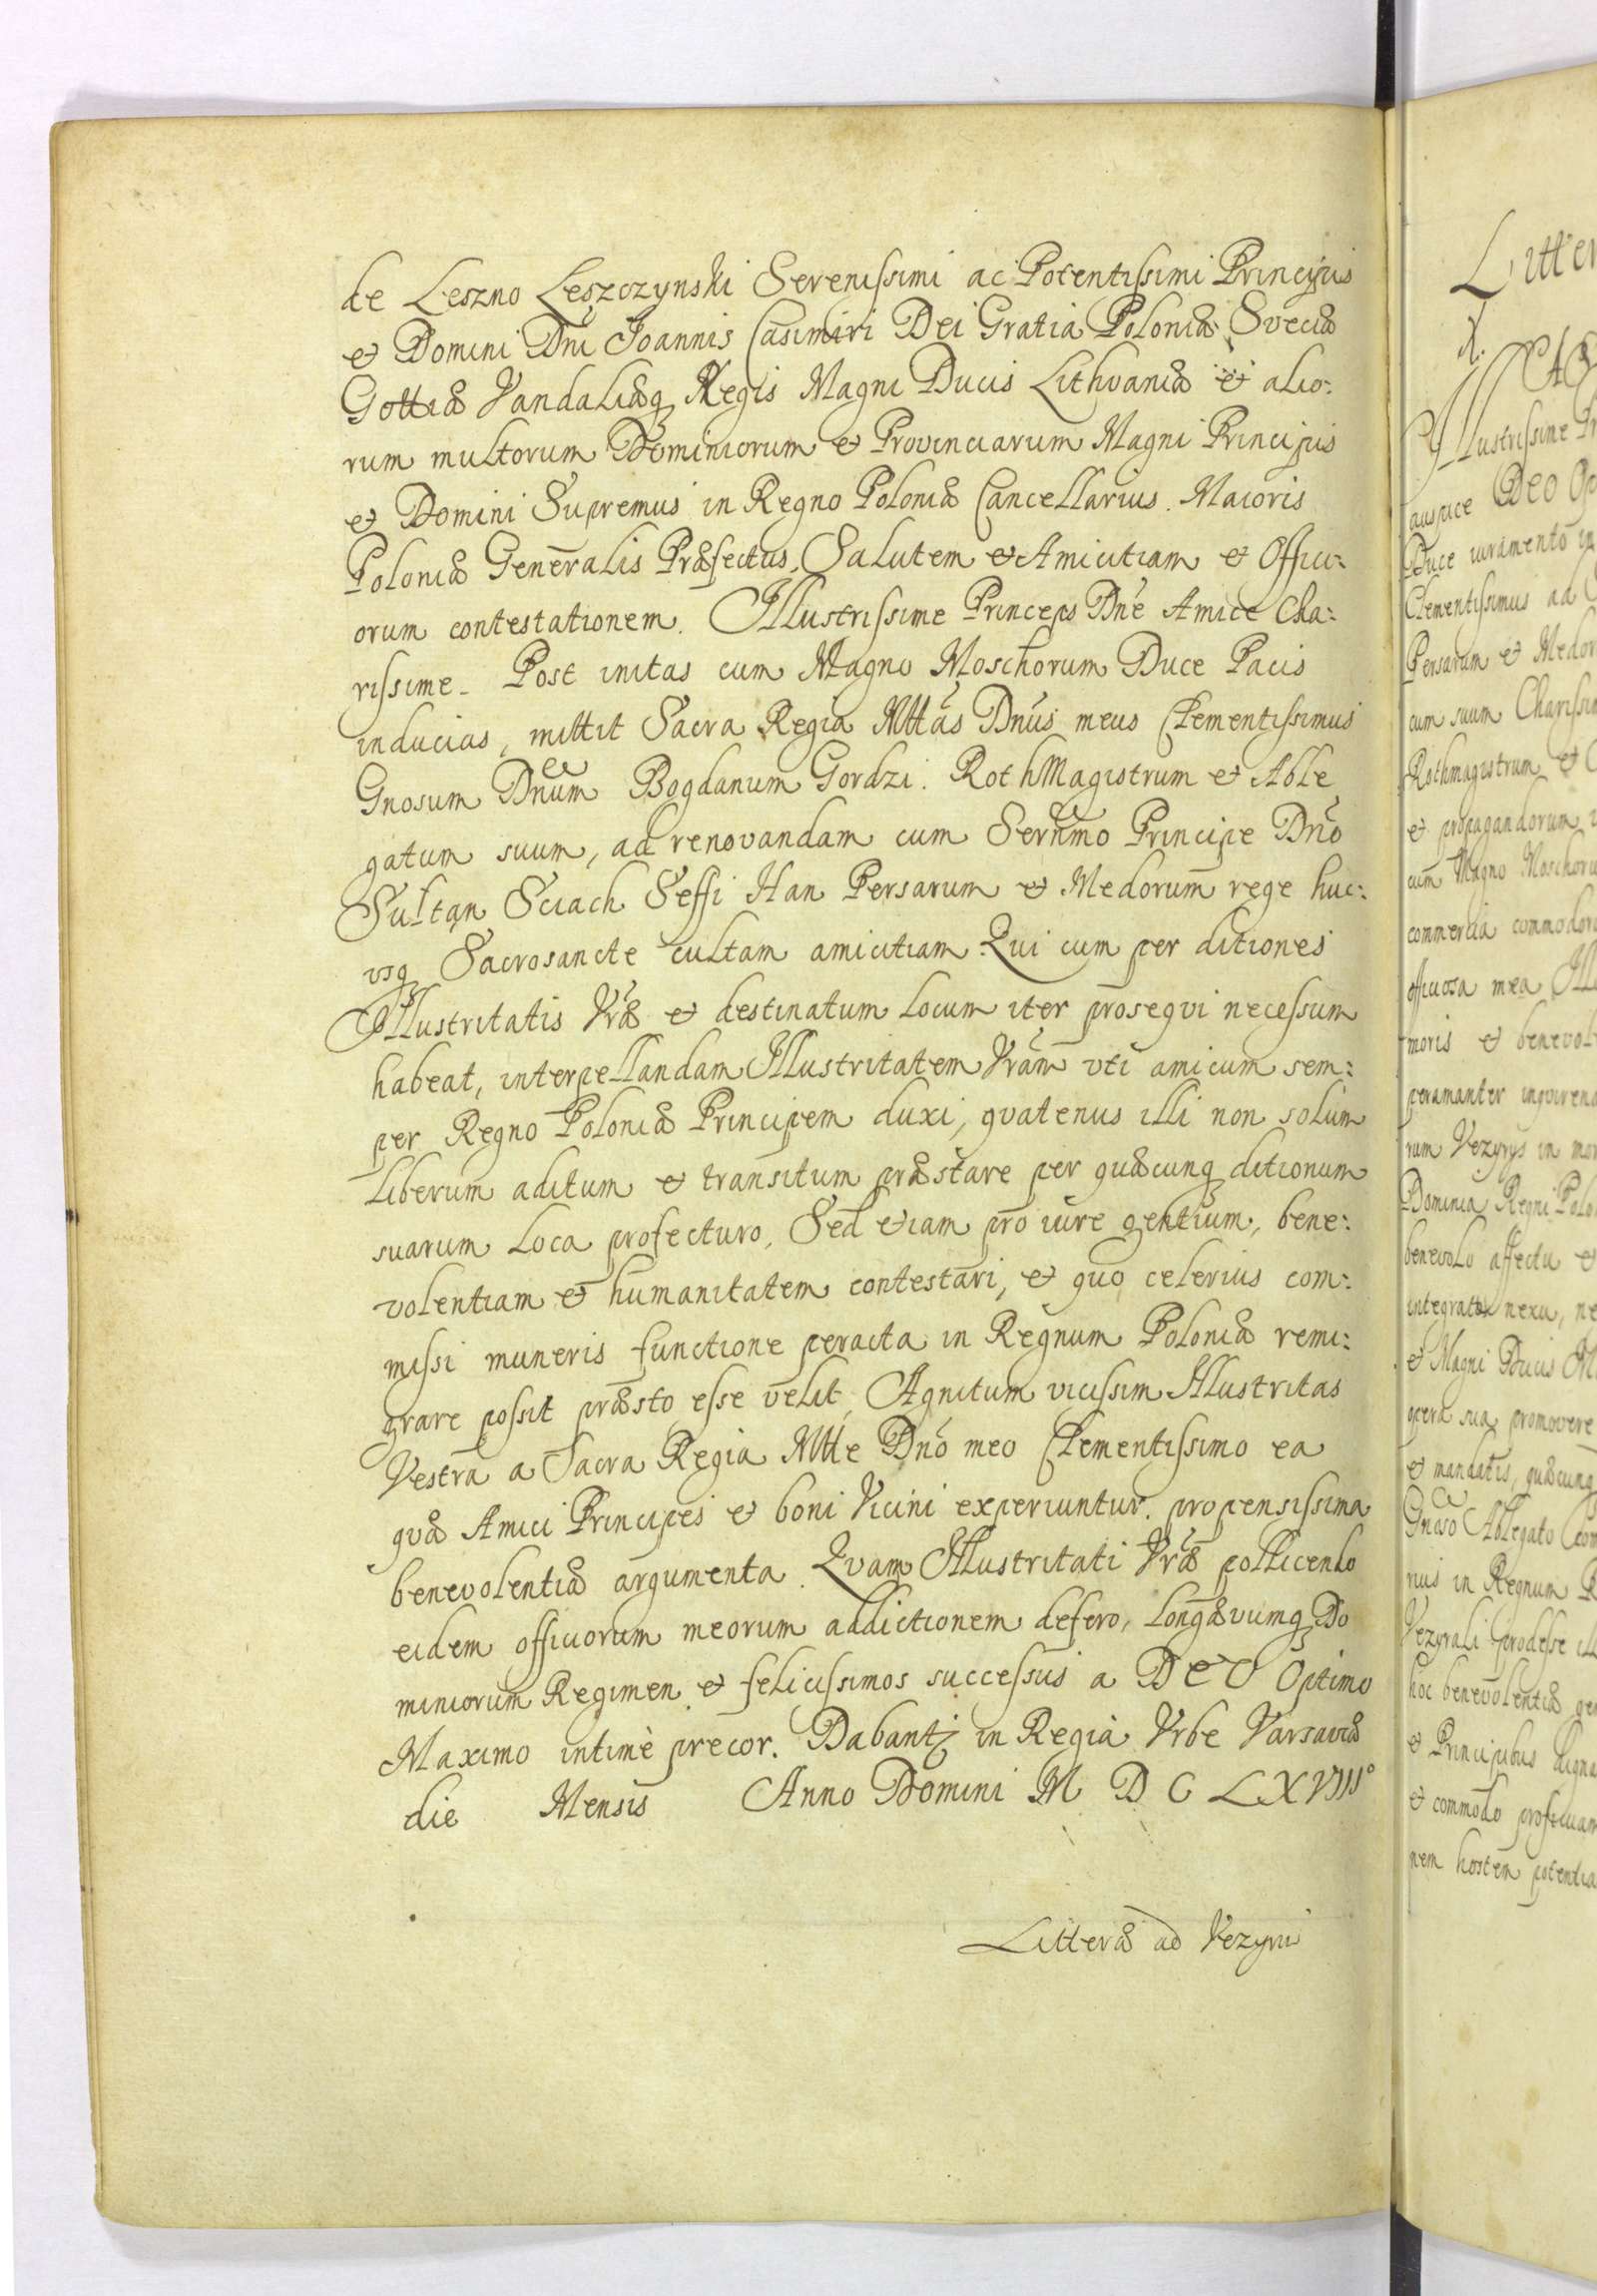 de Leszno Leszczynski Serenissimi ac Potentissimi Principis
et Domini Dni Joannis Casimiri Dei Gratia Poloniæ Sveciæ
Gottiæ Vandaliæq Regis Magni Ducis Lithvaniæ et alio:
rum multorum Dominiorum et Provinciarum Magni Principis
et Domini Supremus in Regno Poloniæ Cancellarius. Maioris
Poloniæ Generalis Præfectus, Salutem et Amicitiam et Offici:
orum contestationem. Illustrissime Princeps Dne Amice Cha:
rissime. Post initas cum Magno Moschorum Duce Pacis
inducias, mittit Sacra Regia Mttas Dnus meus Clementissimus
Gnosum Dnum Bogdanum Gordzi. RothMagistrum et Able
gatum suum, ad renovandam cum Sernmo Principe Dno
Sultan Sciach Seffi Han Persarum et Medorum rege huc:
usq Sacrosancte cultam amicitiam. Qui cum per ditiones
Illustritatis Vræ et destinatum locum iter proseqvi necessum
habeat, interpellandam Illustritatem Vram uti amicum sem:
per Regno Poloniæ Principem duxi, qvatenus illi non solum
liberum aditum et transitum præstare per quæcunq ditionum
suarum loca profecturo, Sed etiam pro iure gentium, bene:
volentiam et humanitatem contestari, et quo celerius com:
missi muneris functione peracta in Regnum Poloniæ remi:
grare possit præsto esse velit, Agnitum vicissim Illustritas
Vestra a Sacra Regia Mtte Dno meo Clementissimo ea
qvæ Amici Principes et boni Vicini experiuntur. propensissima
benevolentiæ argumenta. Qvam Illustritati Vræ pollicendo
eidem officiorum meorum addictionem defero, longævumq Do
miniorum Regimen et felicissimos successus a DEO Optimo
Maximo intimè precor. Dabantz in Regia Vrbe Varsaviæ
die Mensis Anno Domini M D C LXVIII°
Litteræ ad Vezyrii
Litter
Illustrissime Pr
auspice DEO Op
Duce iuramento in
Clementissimus ad
Persarum et Medor
cum suum Charissim
Rothmagistrum et
et propagandorum
cum Magno Moschoru
commercia commodor
officiosa mea Ill
moris et benevol
peramanter inqviren
rum Vezyrys in mor
Dominia Regni Polo
benevolo affectu et
nexu, ne
et Magni Ducis M
opera sua promovere
et mandatis, quæcunq
Gnoso Ablegato Com
rius in Regnum P
Vezyrali prodesse ill
hoc benevolentiæ ge
et Principibus digna
et commodo
nem hostem potentia